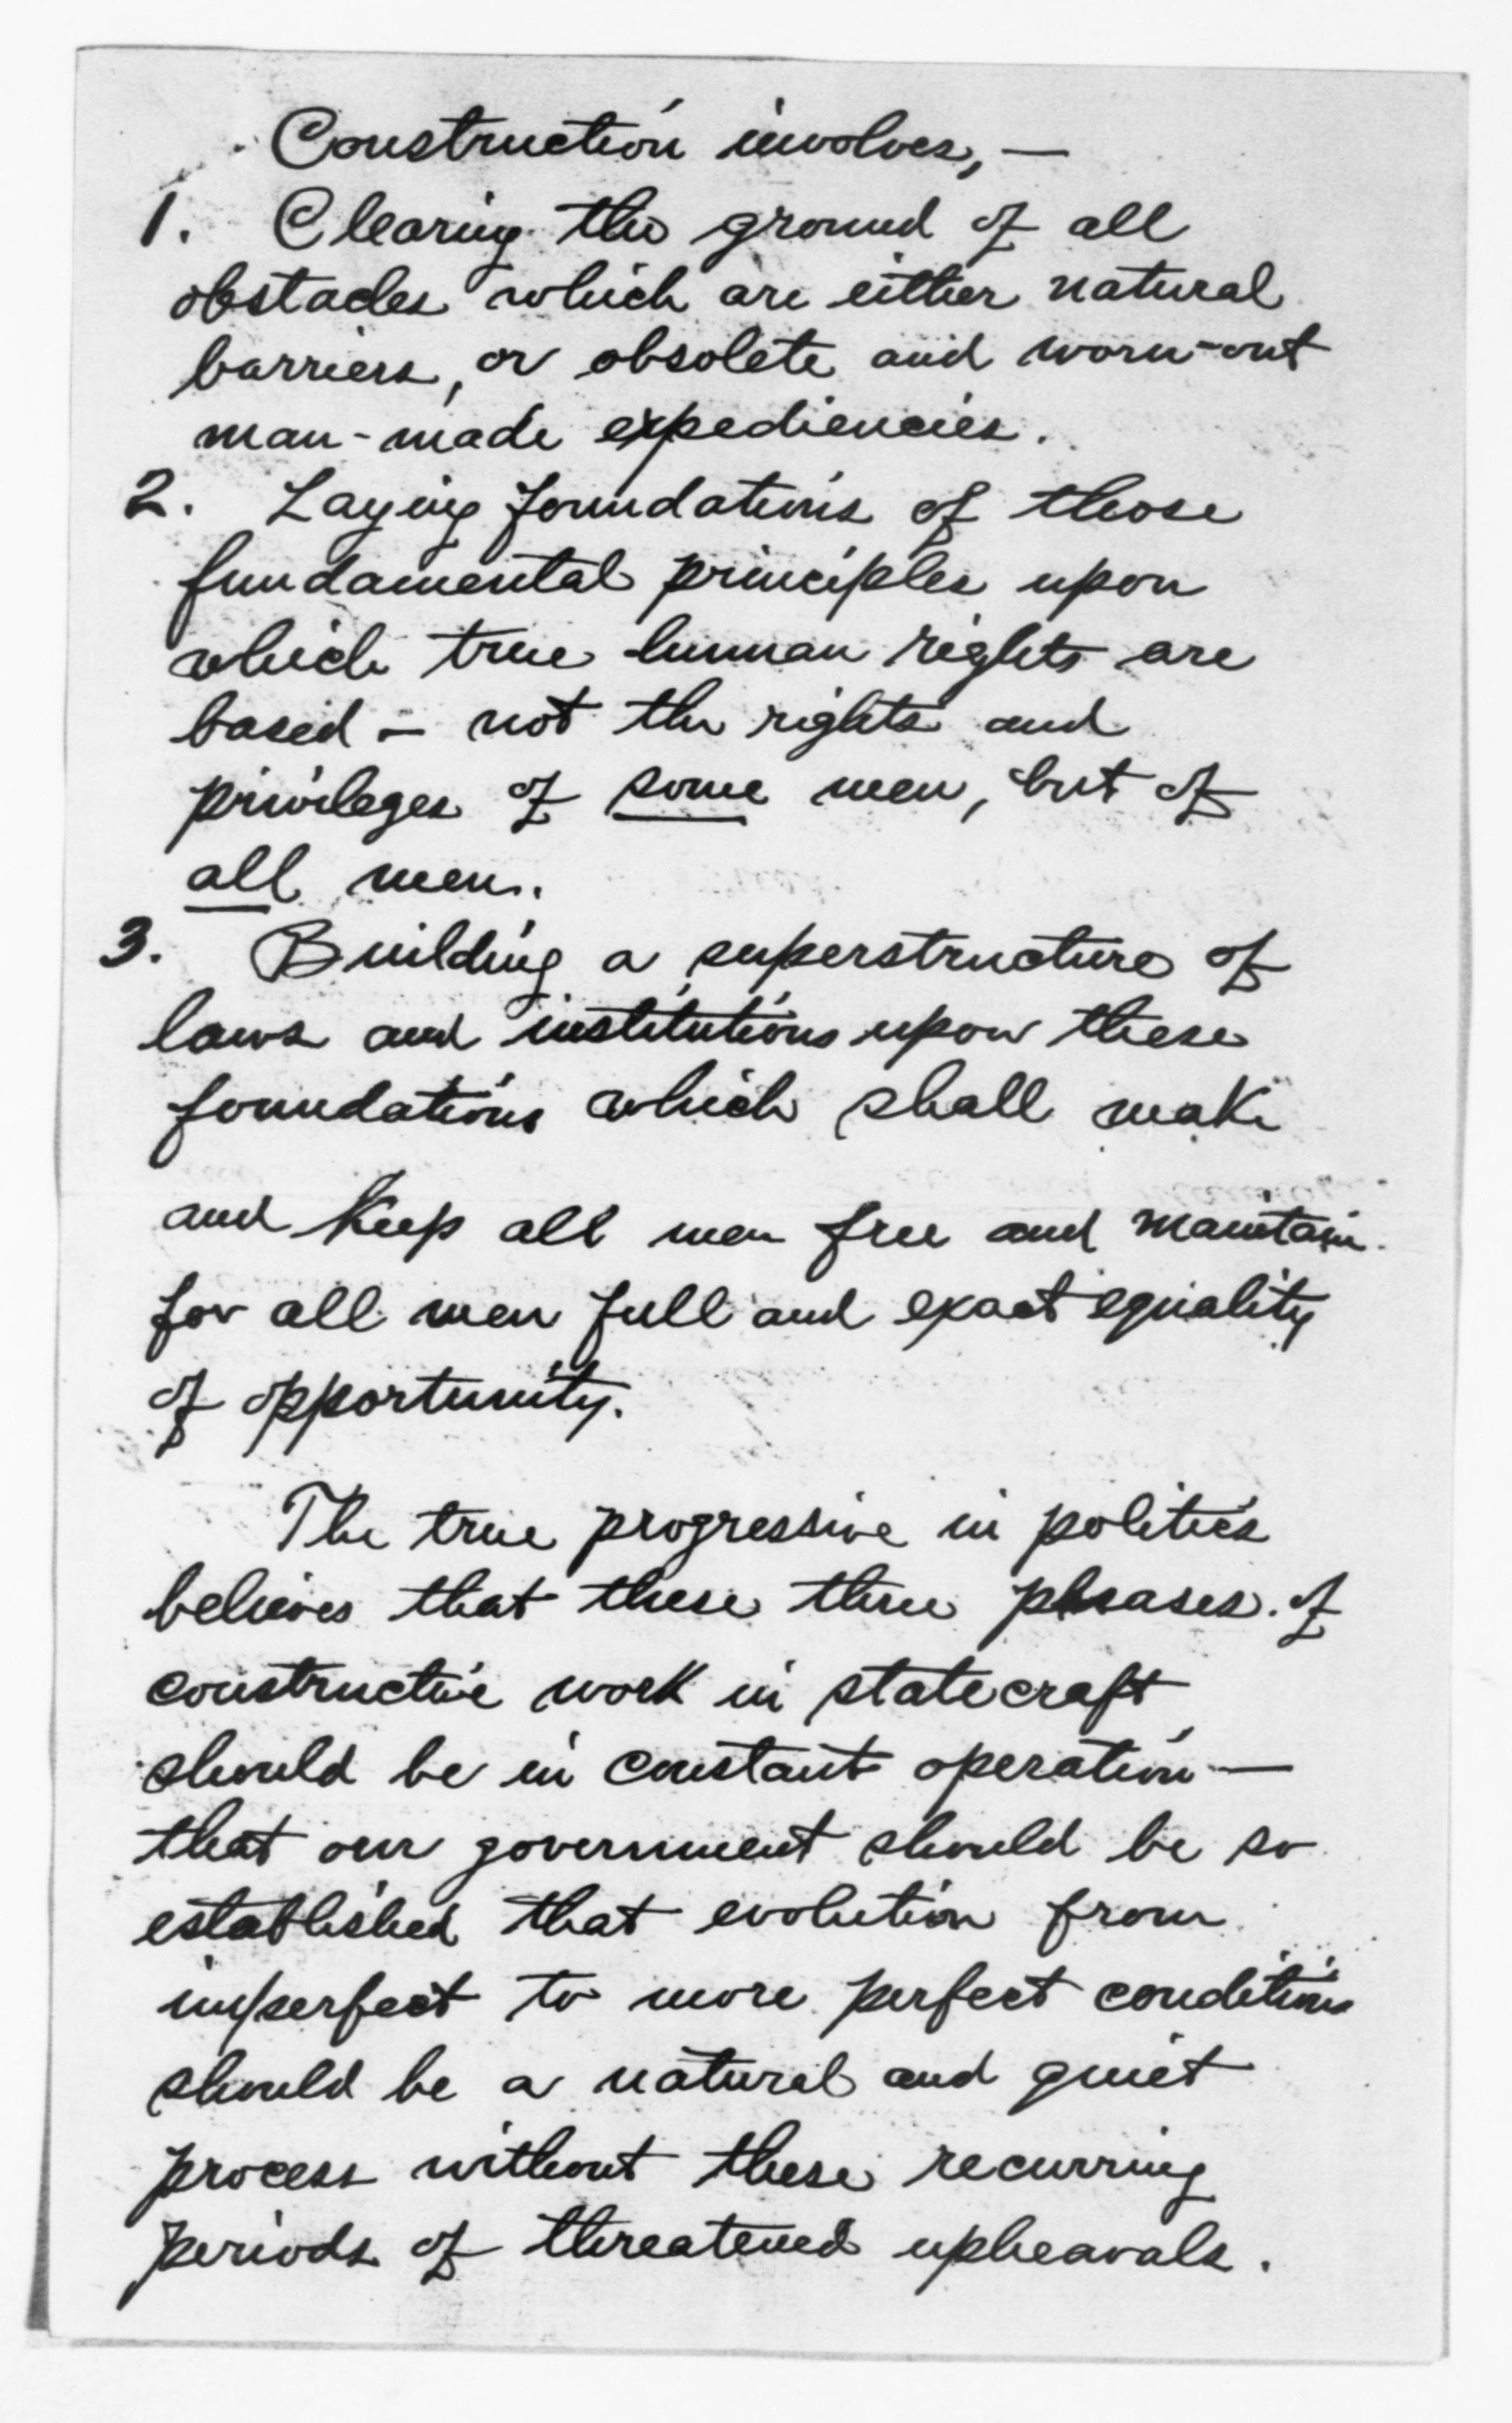 Construction involves, —
1. Clearing the ground of all
obstacles which are either natural
barriers, or obsolete and worn-out
man-made expediencies.
2. Laying foundations of those
fundamental principles upon
which true human rights are
based - not the rights and
privileges of some men, but of
all men.
3. Building a superstructure of
laws and institutions upon these
foundations which shall make
and keep all men free and maintain
for all men full and exact equality
of opportunity.
The true progressive in politics
believes that these three phrases of
constructive work in statecraft
should be in constant operation —
that our government should be so
established that evolution from
imperfect to more perfect conditions
should be a natural and quiet
process without these recurring
periods of threatened upheavals.